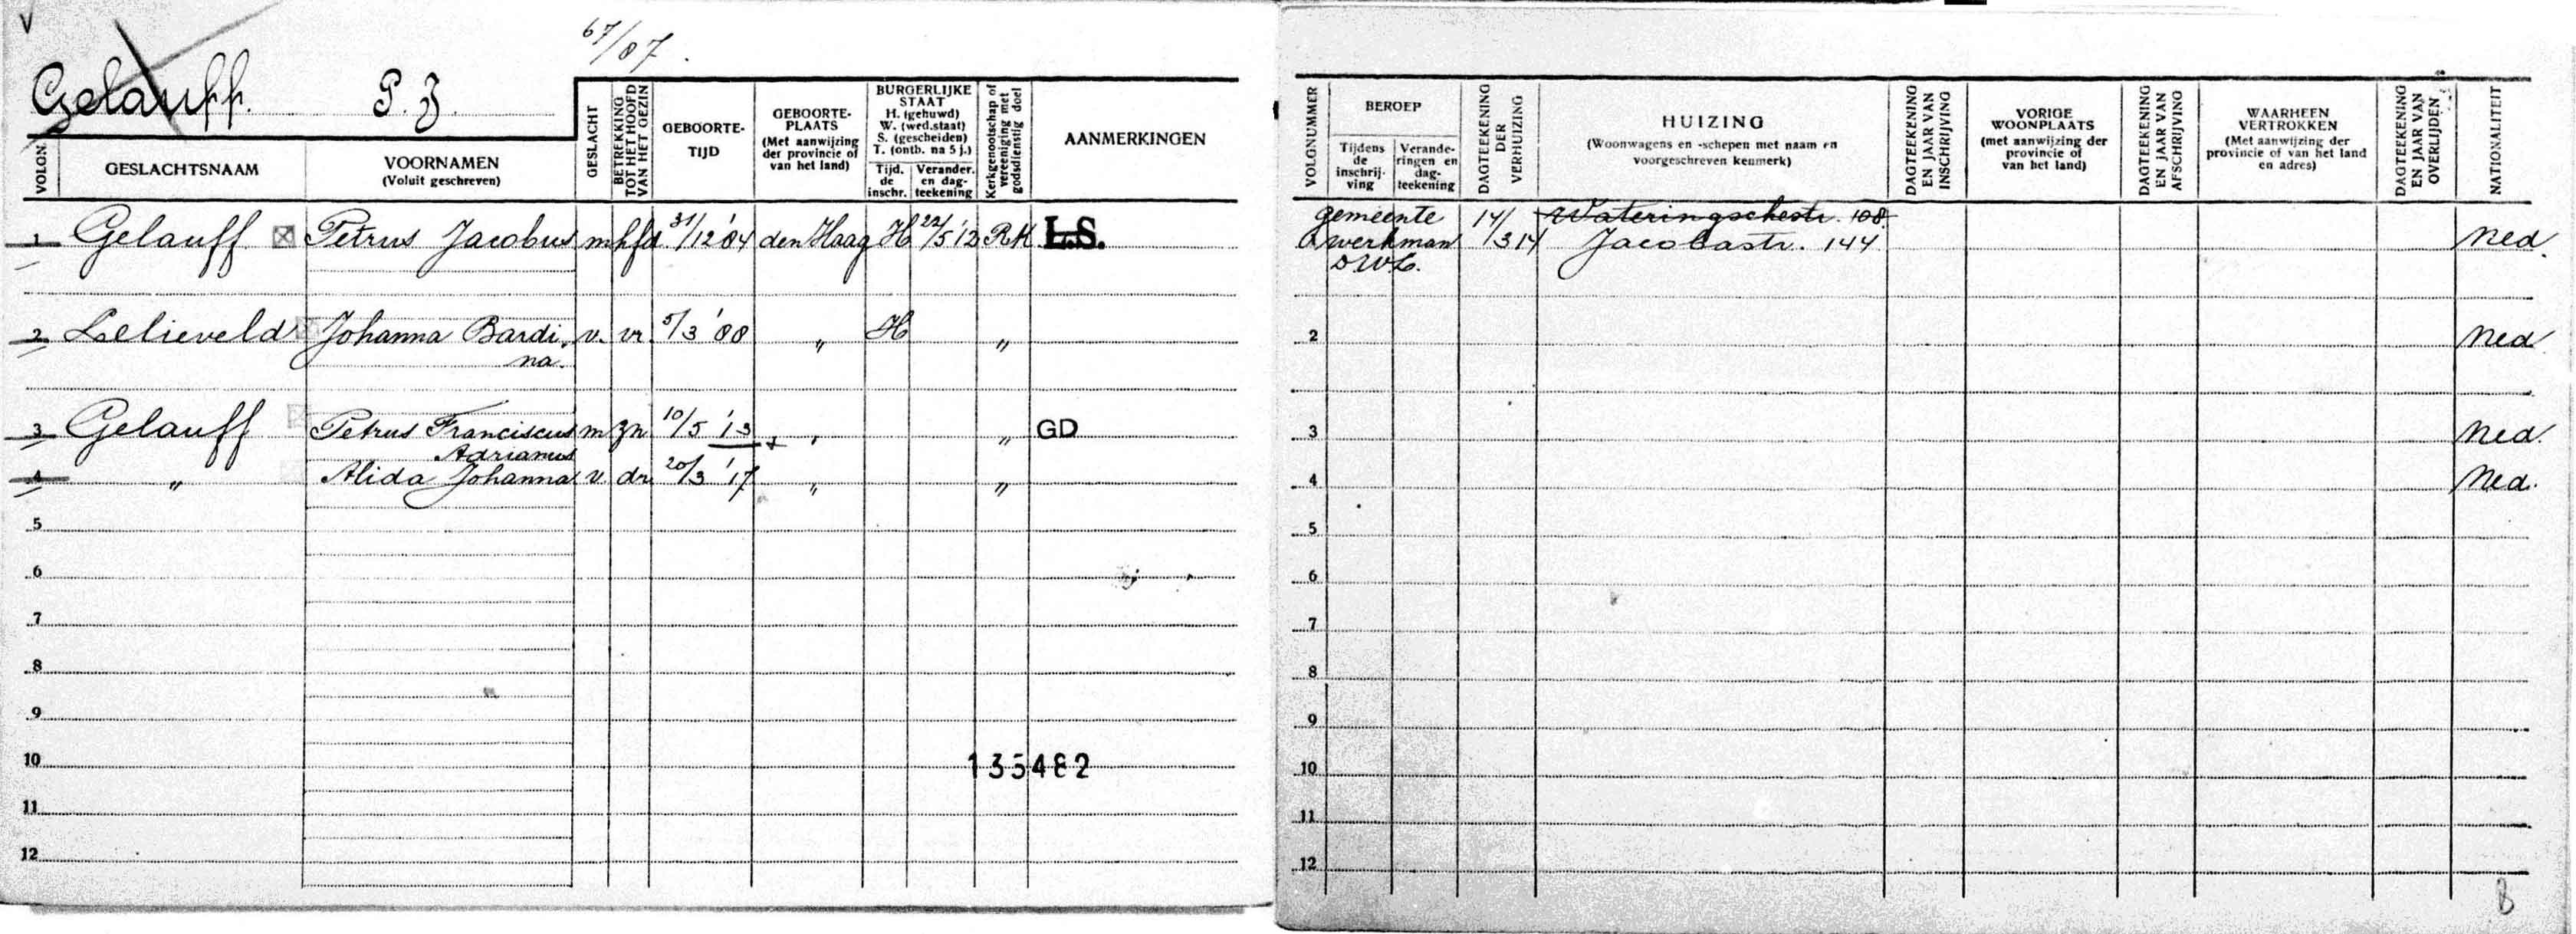 V
67/87.
Gelauff. P. J.
VOLGN. GESLACHTSNAAM
VOORNAMEN
(Voluit geschreven)
GESLACHT
BETREKKING
TOT HET HOOFD
VAN HET GEZIN
GEBOORTE-
TIJD
GEBOORTE-
PLAATS
(Met aanwijzing
der provincie of
van het land)
BURGERLIJKE
STAAT
H. (gehuwd)
W. (wed.staat)
S. (gescheiden)
T. (ontb. na 5 j.)
Tijd.
de
inschr.
Verander.
en dag-
teekening
Kerkgenootschap of
vereeniging met
godsdienstig doel
AANMERKINGEN
1 Gelauff Petrus Jacobus m hfd 31/12 '84 den Haag H 22/5 '12 RK L.S.
2 Lelieveld Johanna Bardi- v. vr. 5/3 '88 " H "
na.
3 Gelauff Petrus Franciscus m zn 10/5 '13 " " GD
Adrianus
4 " Alida Johanna v. dr. 20/3 '17 " "
5
6
7
8
9
10 135482
11
12
VOLGNUMMER
BEROEP
Tijdens
de
inschrij-
ving
Verande-
ringen en
dag-
teekening
DAGTEEKENING
DER
VERHUIZING
HUIZING
(Woonwagens en -schepen met naam en
voorgeschreven kenmerk)
DAGTEEKENING
EN JAAR VAN
INSCHRIJVING
VORIGE
WOONPLAATS
(met aanwijzing der
provincie of
van het land)
DAGTEEKENING
EN JAAR VAN
AFSCHRIJVING
WAARHEEN
VERTROKKEN
(Met aanwijzing der
provincie of van het land
en adres)
DAGTEEKENING
EN JAAR VAN
OVERLIJDEN
NATIONALITEIT
gemeente 14/ Wateringschestr. 108
werkman /3 14 Jacobastr. 144 Ned.
DWL.
2 Ned
3 Ned.
4 Ned.
5
6
7
8
9
10
11
12
8